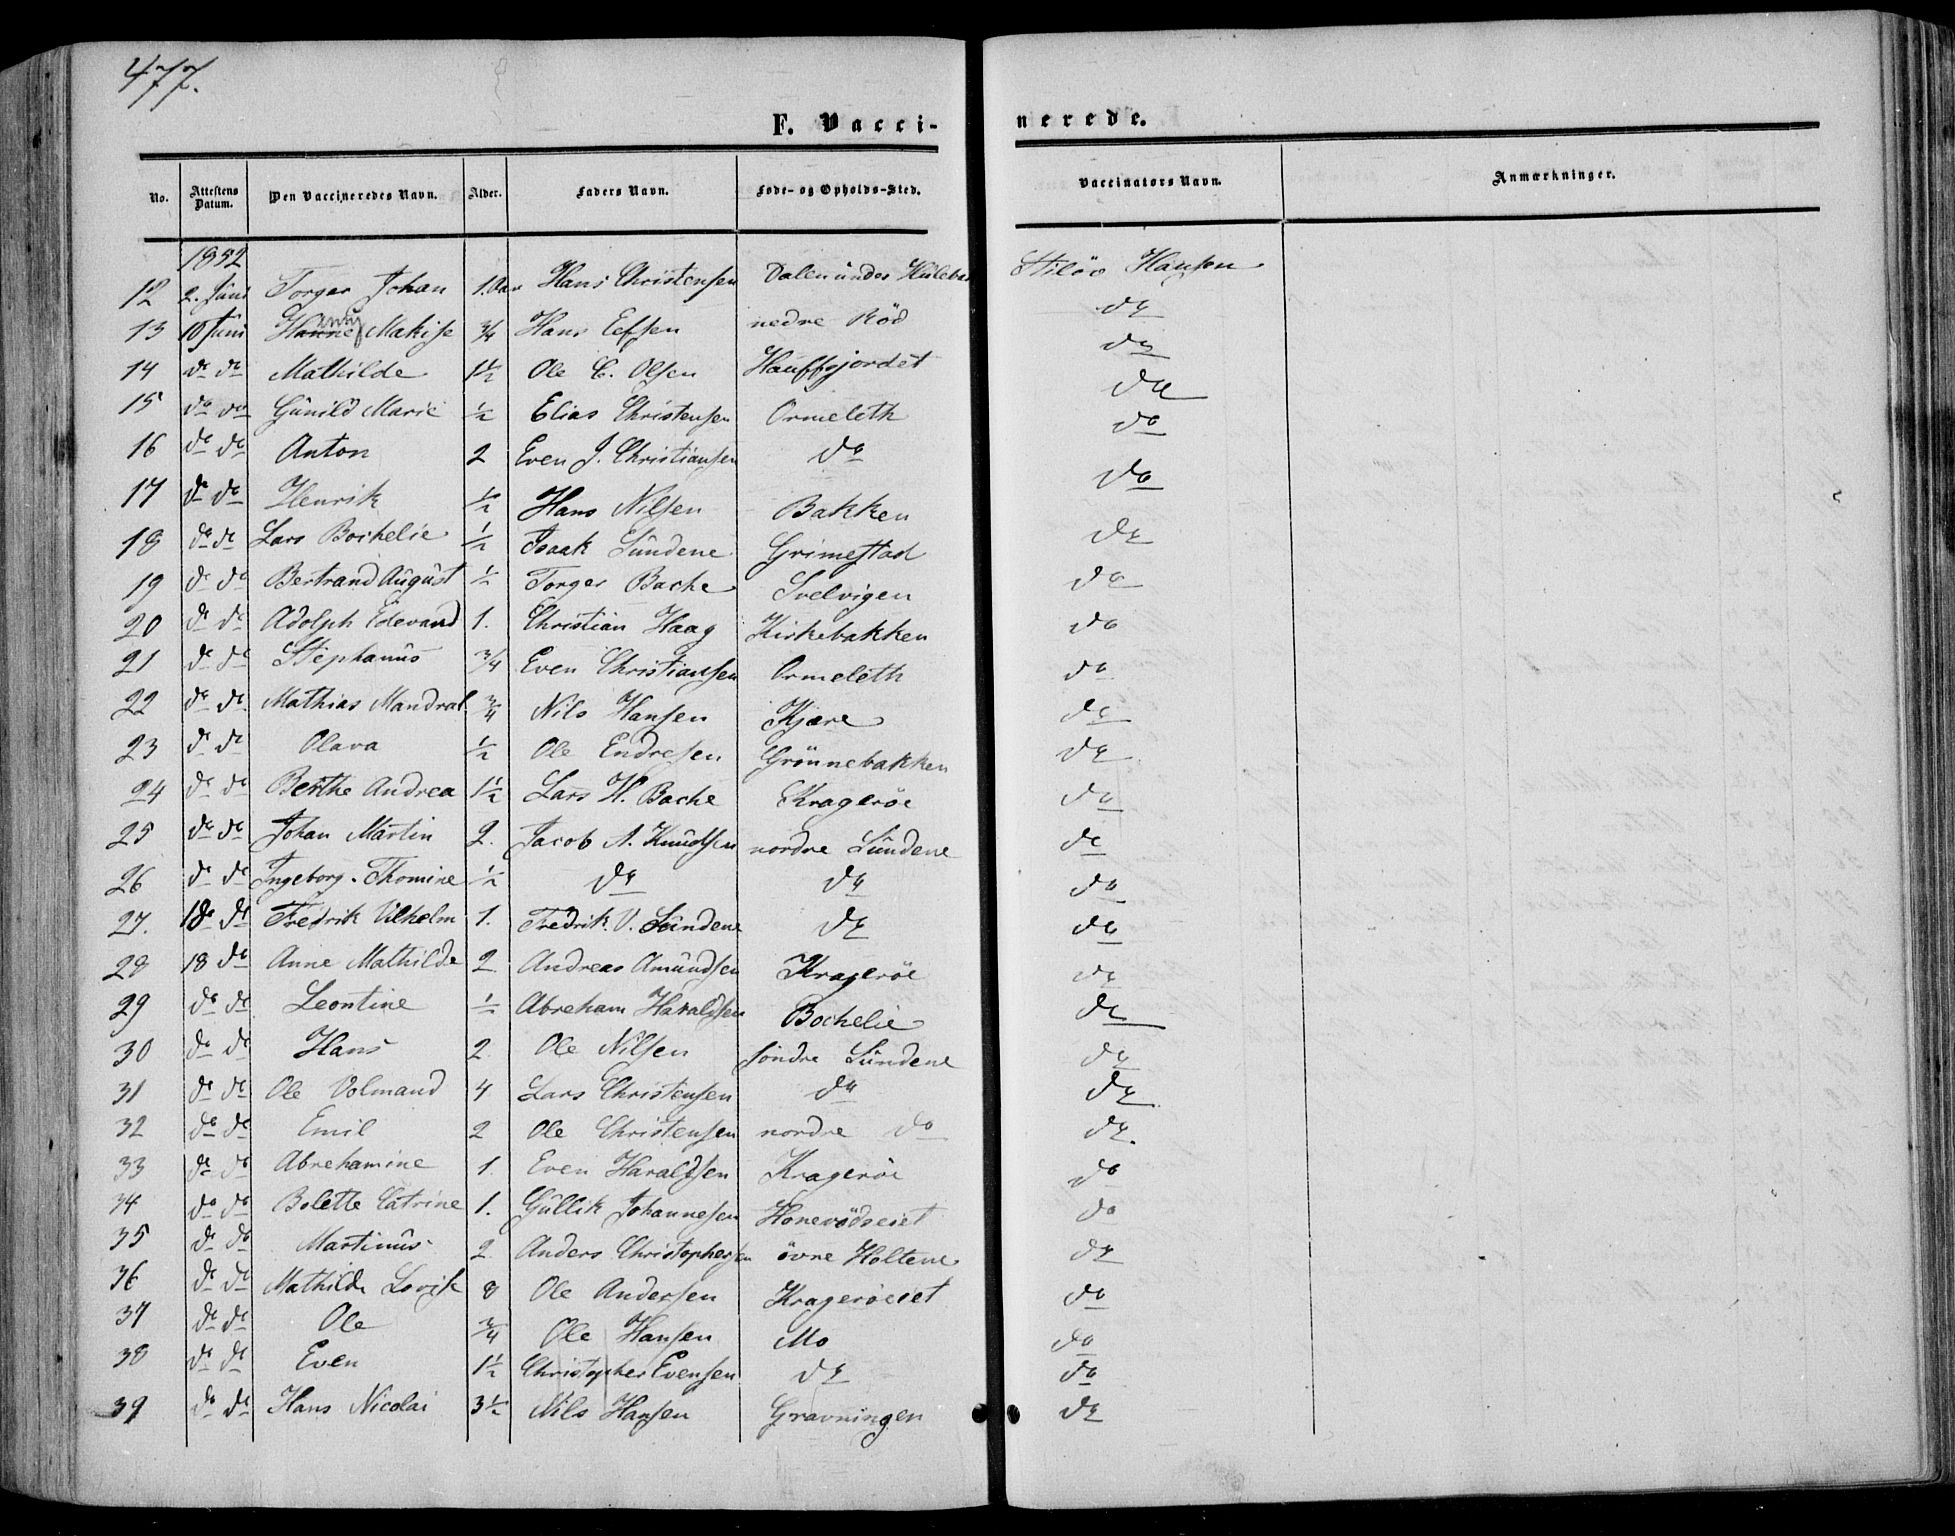 477.
F. Vacci- nerede.
No. Attestens Datum. Den Vaccineredes Navn. Alder. Faders Navn. Føde- og Opholds-Sted. Vaccinators Navn. Anmærkninger.
1852
12 2. Juni Torger Johan 1. Aar Hans Christensen Dalen under Hansen
13 10 Juni Makise 3/4 Hans nedre Röd do
14 do do Mathilde 1 1/2 Ole C. Olsen do
15 do do Gunild Marie 1/2 Elias Christensen Ormeleth do
16 do do Anton 2 Even J. Christiansen do do
17 do do Henrik 1/2 Hans Nilsen Bakken do
18 do do Lars Bochelie 1/2 Isaak Sundene Grimestad do
19 do do Bertrand August 1/2 Torger Bache Svelvigen do
20 do do Adolph Edevard 1. Christian Haag Kirkebakken do
21 do do Stephanus 3/4 Even Christiansen Ormeleth do
22 do do Mathias Mandrat 3/4 Nils Hansen Kjære do
23 do do Olava 1/2 Ole Endresen Grönnebakken do
24 do do Berthe Andrea 1 1/2 Lars H. Bache Kragerøe do
25 do do Johan Martin 2. Jacob A. Knudsen nordre Sundene do
26 do do Ingeborg Thomine 1/2 do do do
27. 18 do Fredrik Vilhelm 1. Fredrik V. Sundene do do
28 18 do Anne Mathilde 2 Andreas Amundsen Kragerøe do
29 do do Leontine 1/2 Abreham Haraldsen Bochelie do
30 do do Hans 2. Ole Nilsen söndre Sundene do
31 do do Ole Volmand 4 Lars Christensen do do
32 do do Emil 2 Ole Christensen nordre do do
33 do do Abrehamine 1. Even Haraldsen Kragerøe do
34 do do Bolette Catrine 1. Gullik Johannesen do
35 do do Martinus 2. Anders Christophersen övre Holtene do
36 do do Mathilde Lovise 8 Ole Andersen Kragerøeiet do
37 do do Ole 3/4 Ole Hansen Mo do
38 do do Even 1 1/2 Christopher Evensen do do
39 do do Hans Nicolai 3 1/2 Nils Hansen Gravningen do